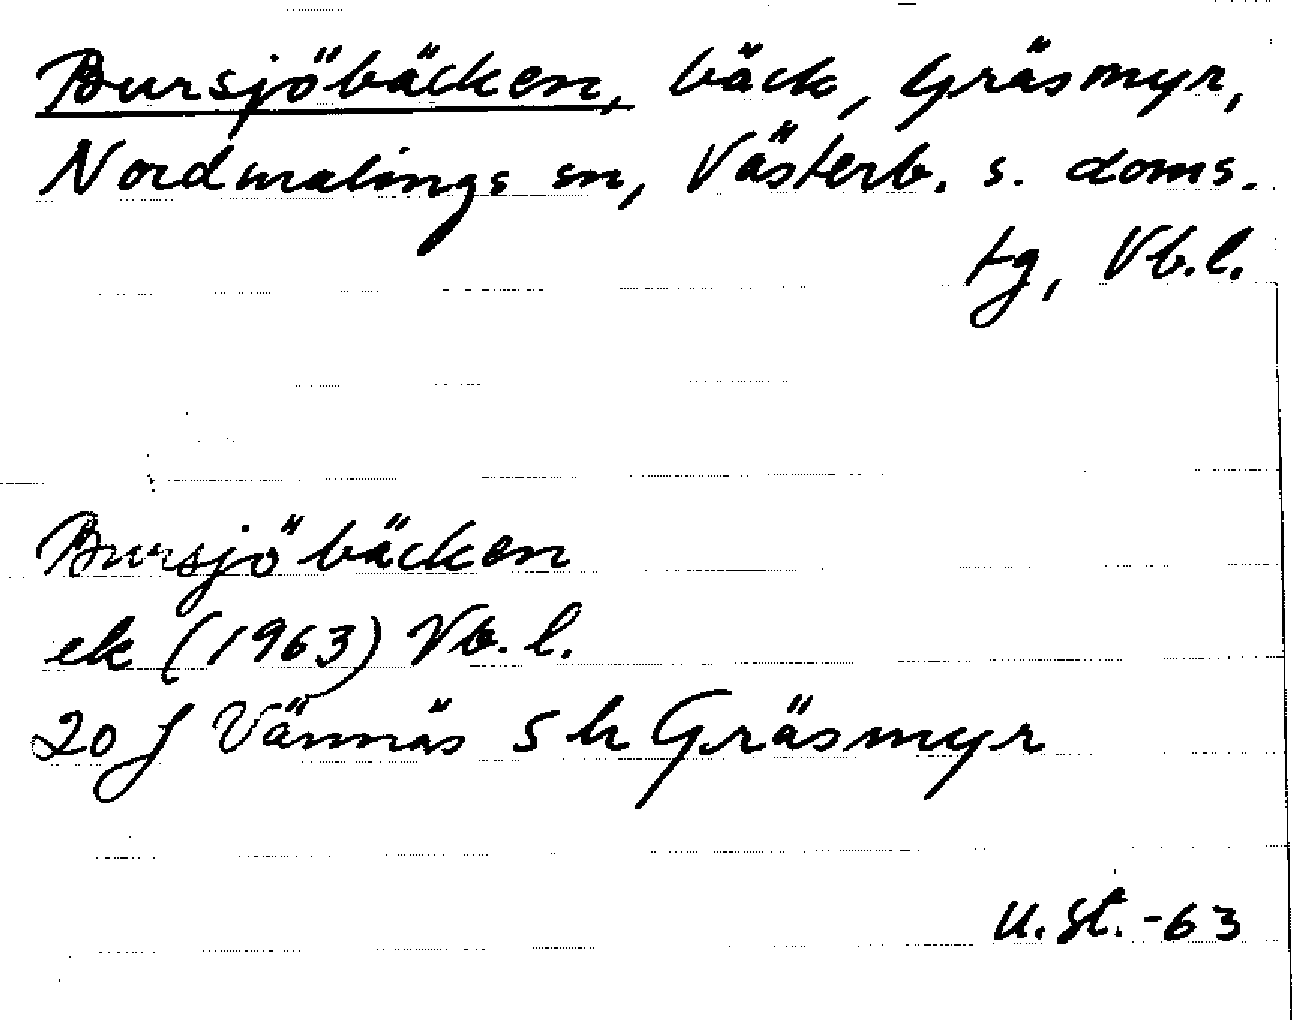 Bursjöbäcken, bäck, Gräsmyr,
Nordmalings sn, Västerb. s. doms.
tg, Vb.l.
Bursjöbäcken
ek (1963) Vb.l.
20 J Vännäs 5 h Gräsmyr
U.St.-63